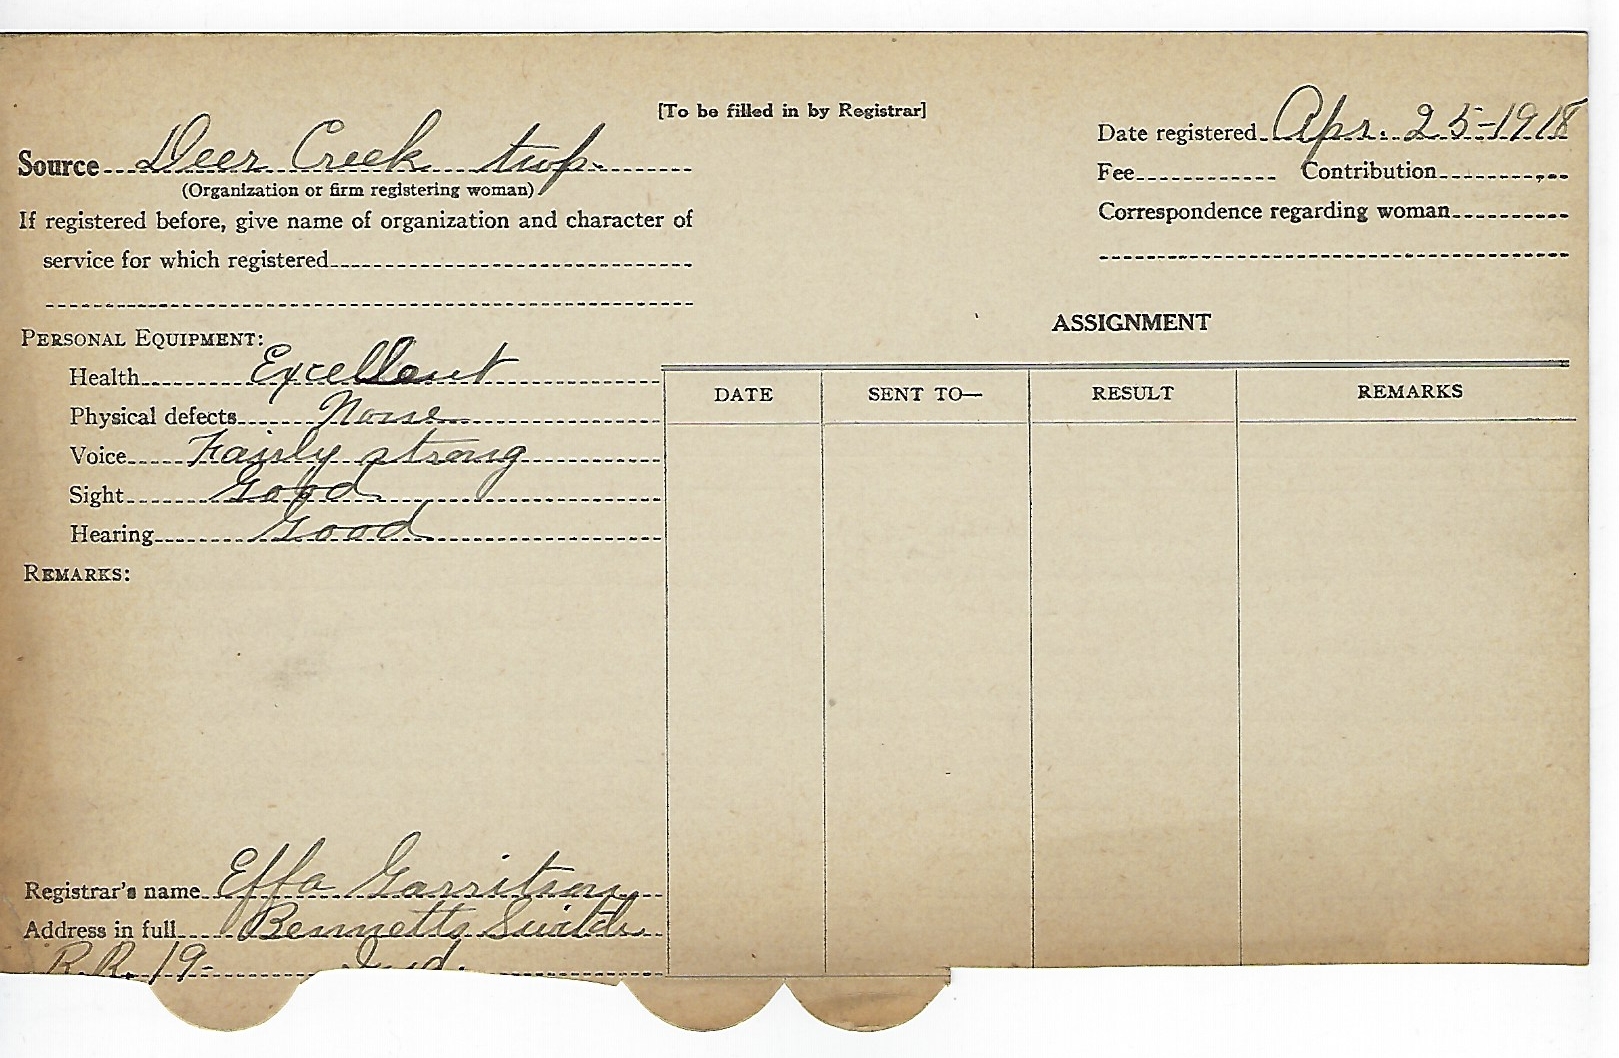 [To be filled in by Registrar]
Date registered Apr. 25-1918
Source Deer Creek twp.
(Organization or firm registering woman)
Fee Contribution
If registered before, give name of organization and character of
service for which registered
Correspondence regarding woman
ASSIGNMENT
PERSONAL EQUIPMENT:
Health Excellent
Physical defects None
Voice Fairly strong
Sight Good
Hearing Good
DATE SENT TO— RESULT REMARKS
REMARKS:
Registrar's name Effa Garritson
Address in full Bennetts Switch
R.R. 19- Ind.